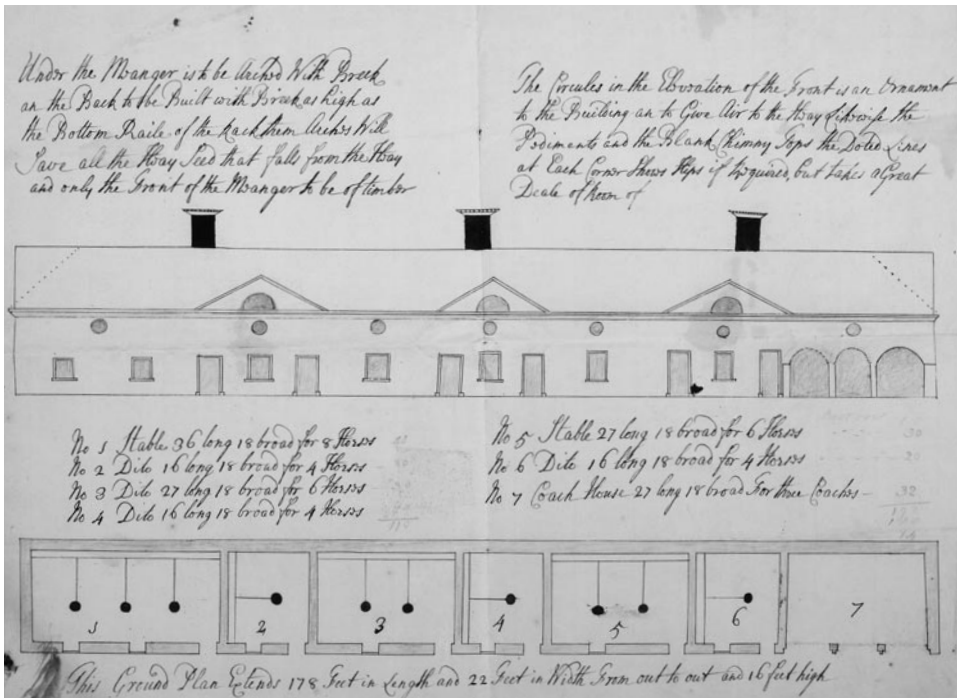 Under the Manger is to be Arched With Breek
an the Back to be Built with Breek as high as
the Bottom Raile of the Rack them Arches Will
Save all the Hay Seed that falls from the Hay
and only the Front of the Manger to be of timber
The Circules in the Elivation of the Front is an Ornament
to the Building an to Give Air to the Hay Likwise the
Pediments and the Blank Chimny Tops the Doted Lines
at Each Corner Shows Hips if Required, but takes a Great
Deale of Room of
No 1 Stable 36 long 18 broad for 8 Horses
No 2 Dito 16 long 18 broad for 4 Horses
No 3 Dito 27 long 18 broad for 6 Horses
No 4 Dito 16 long 18 broad for 4 Horses
No 5 Stable 27 long 18 broad for 6 Horses
No 6 Dito 16 long 18 broad for 4 Horses
No 7 Coach House 27 long 18 broad For three Coaches
1 2 3 4 5 6 7
This Ground Plan Extends 178 Feet in Length and 22 Feet in Width From out to out and 16 feet high